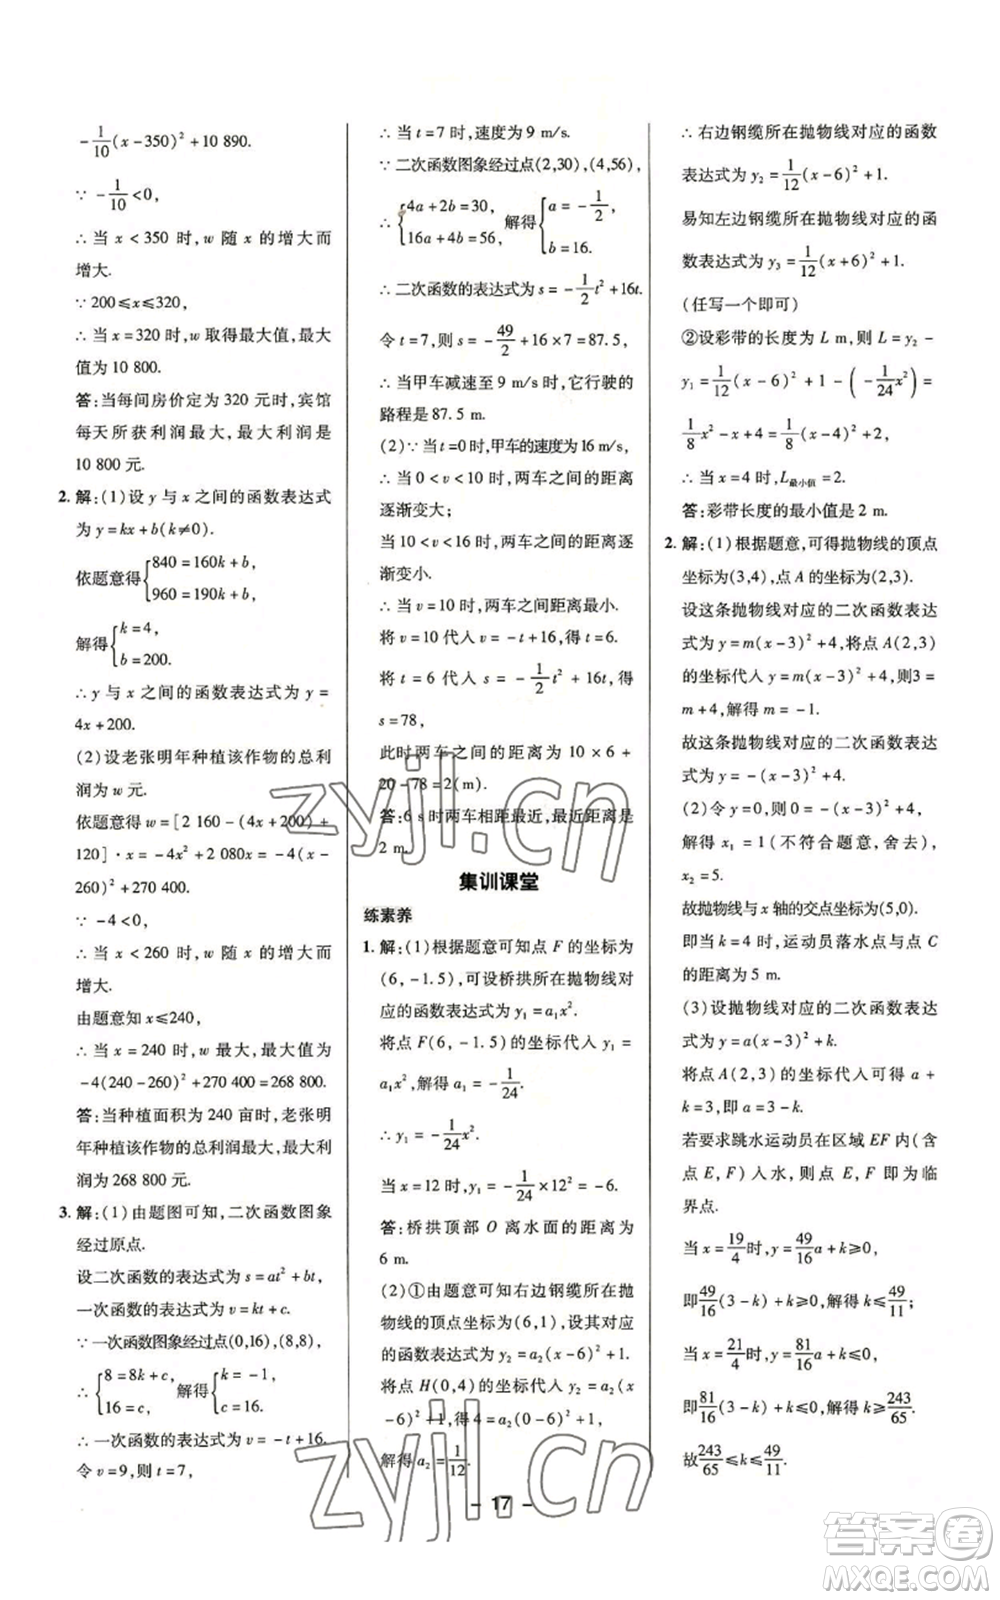 -1/10(x-350)²+10 890.
∵ -1/10<0,
∴ 当 x<350 时,w 随 x 的增大而
增大.
∵ 200≤x≤320,
∴ 当 x=320 时,w 取得最大值,最大
值为 10 800.
答:当每间房价定为 320 元时,宾馆
每天所获利润最大,最大利润是
10 800 元.
2. 解:(1)设 y 与 x 之间的函数表达式
为 y=kx+b(k≠0).
依题意得{840=160k+b,
960=190k+b,
解得{k=4,
b=200.
∴ y 与 x 之间的函数表达式为 y=
4x+200.
(2)设老张明年种植该作物的总利
润为 w 元.
依题意得 w=[2 160-(4x+200)+
120]·x=-4x²+2 080x=-4(x-
260)²+270 400.
∵ -4<0,
∴ 当 x<260 时,w 随 x 的增大而
增大.
由题意知 x≤240,
∴ 当 x=240 时,w 最大,最大值为
-4(240-260)²+270 400=268 800.
答:当种植面积为 240 亩时,老张明
年种植该作物的总利润最大,最大利
润为 268 800 元.
3. 解:(1)由题图可知,二次函数图象
经过原点.
设二次函数的表达式为 s=at²+bt,
一次函数的表达式为 v=kt+c.
∵ 一次函数图象经过点(0,16),(8,8),
∴ {8=8k+c,
16=c, 解得{k=-1,
c=16.
∴ 一次函数的表达式为 v=-t+16.
令 v=9,则 t=7,
∴ 当 t=7 时,速度为 9 m/s.
∵ 二次函数图象经过点(2,30),(4,56),
∴ {4a+2b=30,
16a+4b=56, 解得{a=-1/2,
b=16.
∴ 二次函数的表达式为 s=-1/2t²+16t.
令 t=7,则 s=-49/2+16×7=87.5,
∴ 当甲车减速至 9 m/s 时,它行驶的
路程是 87.5 m.
(2)∵ 当 t=0 时,甲车的速度为 16 m/s,
∴ 当 0<v<10 时,两车之间的距离
逐渐变大;
当 10<v<16 时,两车之间的距离逐
渐变小.
∴ 当 v=10 时,两车之间距离最小.
将 v=10 代入 v=-t+16,得 t=6.
将 t=6 代入 s=-1/2t²+16t,得
s=78,
此时两车之间的距离为 10×6+
20-78=2(m).
答:6 s 时两车相距最近,最近距离是
2 m.
集训课堂
练素养
1. 解:(1)根据题意可知点 F 的坐标为
(6,-1.5),可设桥拱所在抛物线对
应的函数表达式为 y₁=a₁x².
将点 F(6,-1.5)的坐标代入 y₁=
a₁x²,解得 a₁=-1/24.
∴ y₁=-1/24x².
当 x=12 时,y₁=-1/24×12²=-6.
答:桥拱顶部 O 离水面的距离为
6 m.
(2)①由题意可知右边钢缆所在抛
物线的顶点坐标为(6,1),设其对应
的函数表达式为 y₂=a₂(x-6)²+1.
将点 H(0,4)的坐标代入 y₂=a₂(x
-6)²+1,得 4=a₂(0-6)²+1,
解得 a₂=1/12.
∴ 右边钢缆所在抛物线对应的函数
表达式为 y₂=1/12(x-6)²+1.
易知左边钢缆所在抛物线对应的函
数表达式为 y₃=1/12(x+6)²+1.
(任写一个即可)
②设彩带的长度为 L m,则 L=y₂-
y₁=1/12(x-6)²+1-(-1/24x²)=
1/8x²-x+4=1/8(x-4)²+2,
∴ 当 x=4 时,L最小值=2.
答:彩带长度的最小值是 2 m.
2. 解:(1)根据题意,可得抛物线的顶点
坐标为(3,4),点 A 的坐标为(2,3).
设这条抛物线对应的二次函数表达
式为 y=m(x-3)²+4,将点 A(2,3)
的坐标代入 y=m(x-3)²+4,则3=
m+4,解得 m=-1.
故这条抛物线对应的二次函数表达
式为 y=-(x-3)²+4.
(2)令 y=0,则 0=-(x-3)²+4,
解得 x₁=1(不符合题意,舍去),
x₂=5.
故抛物线与 x 轴的交点坐标为(5,0).
即当 k=4 时,运动员落水点与点 C
的距离为 5 m.
(3)设抛物线对应的二次函数表达
式为 y=a(x-3)²+k.
将点 A(2,3)的坐标代入可得 a+
k=3,即 a=3-k.
若要求跳水运动员在区域 EF 内(含
点 E,F)入水,则点 E,F 即为临
界点.
当 x=19/4时,y=49/16a+k≥0,
即49/16(3-k)+k≥0,解得 k≤49/11;
当 x=21/4时,y=81/16a+k≤0,
即81/16(3-k)+k≤0,解得 k≥243/65.
故243/65≤k≤49/11.
- 17 -
zyjl.cn
zyjl.cn
答案圈
MXQE.COM